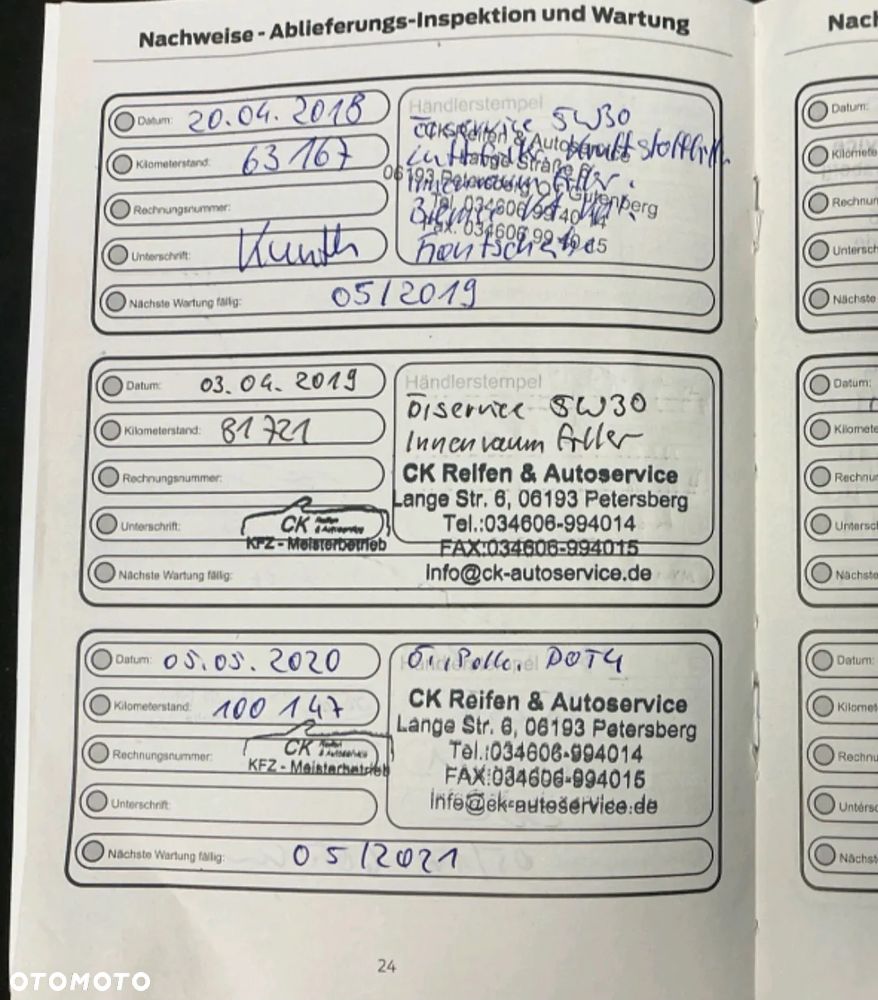 Nachweise - Ablieferungs-Inspektion und Wartung
Datum: 20.04.2018
Kilometerstand: 63 167
Rechnungsnummer:
Unterschrift: Kunth
Nächste Wartung fällig: 05/2019
Händlerstempel
Ölservice 5W30
CK Reifen & Autoservice
Luftfilter, Kraftstofffilter
06193 Petersberg OT Gutenberg
Innenraum Filter.
Tel. 034606 99 40 14
Fax. 034606 99 40 15
Datum: 03.04.2019
Kilometerstand: 81 721
Rechnungsnummer:
Unterschrift:
CK Reifen & Autoservice
KFZ - Meisterbetrieb
Nächste Wartung fällig:
Händlerstempel
Ölservice 5W30
Innenraum Filter
CK Reifen & Autoservice
Lange Str. 6, 06193 Petersberg
Tel.:034606-994014
FAX:034606-994015
info@ck-autoservice.de
Datum: 05.05.2020
Kilometerstand: 100 147
Rechnungsnummer:
CK Reifen & Autoservice
KFZ - Meisterbetrieb
Unterschrift:
Nächste Wartung fällig: 05/2021
Händlerstempel
Öl, Polle, DOT4
CK Reifen & Autoservice
Lange Str. 6, 06193 Petersberg
Tel.:034606-994014
FAX:034606-994015
info@ck-autoservice.de
24
Nach
Datum:
Kilomete
Rechnun
Untersch
Nächste
Datum:
Kilomete
Rechnu
Untersc
Nächste
Datum:
Kilomet
Rechnu
Untersc
Nächst
OTOMOTO